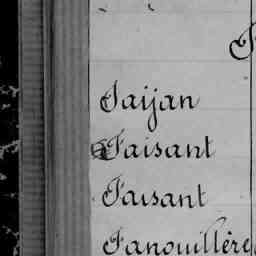 Faijan
Faisant
Faisant
Fanouillère